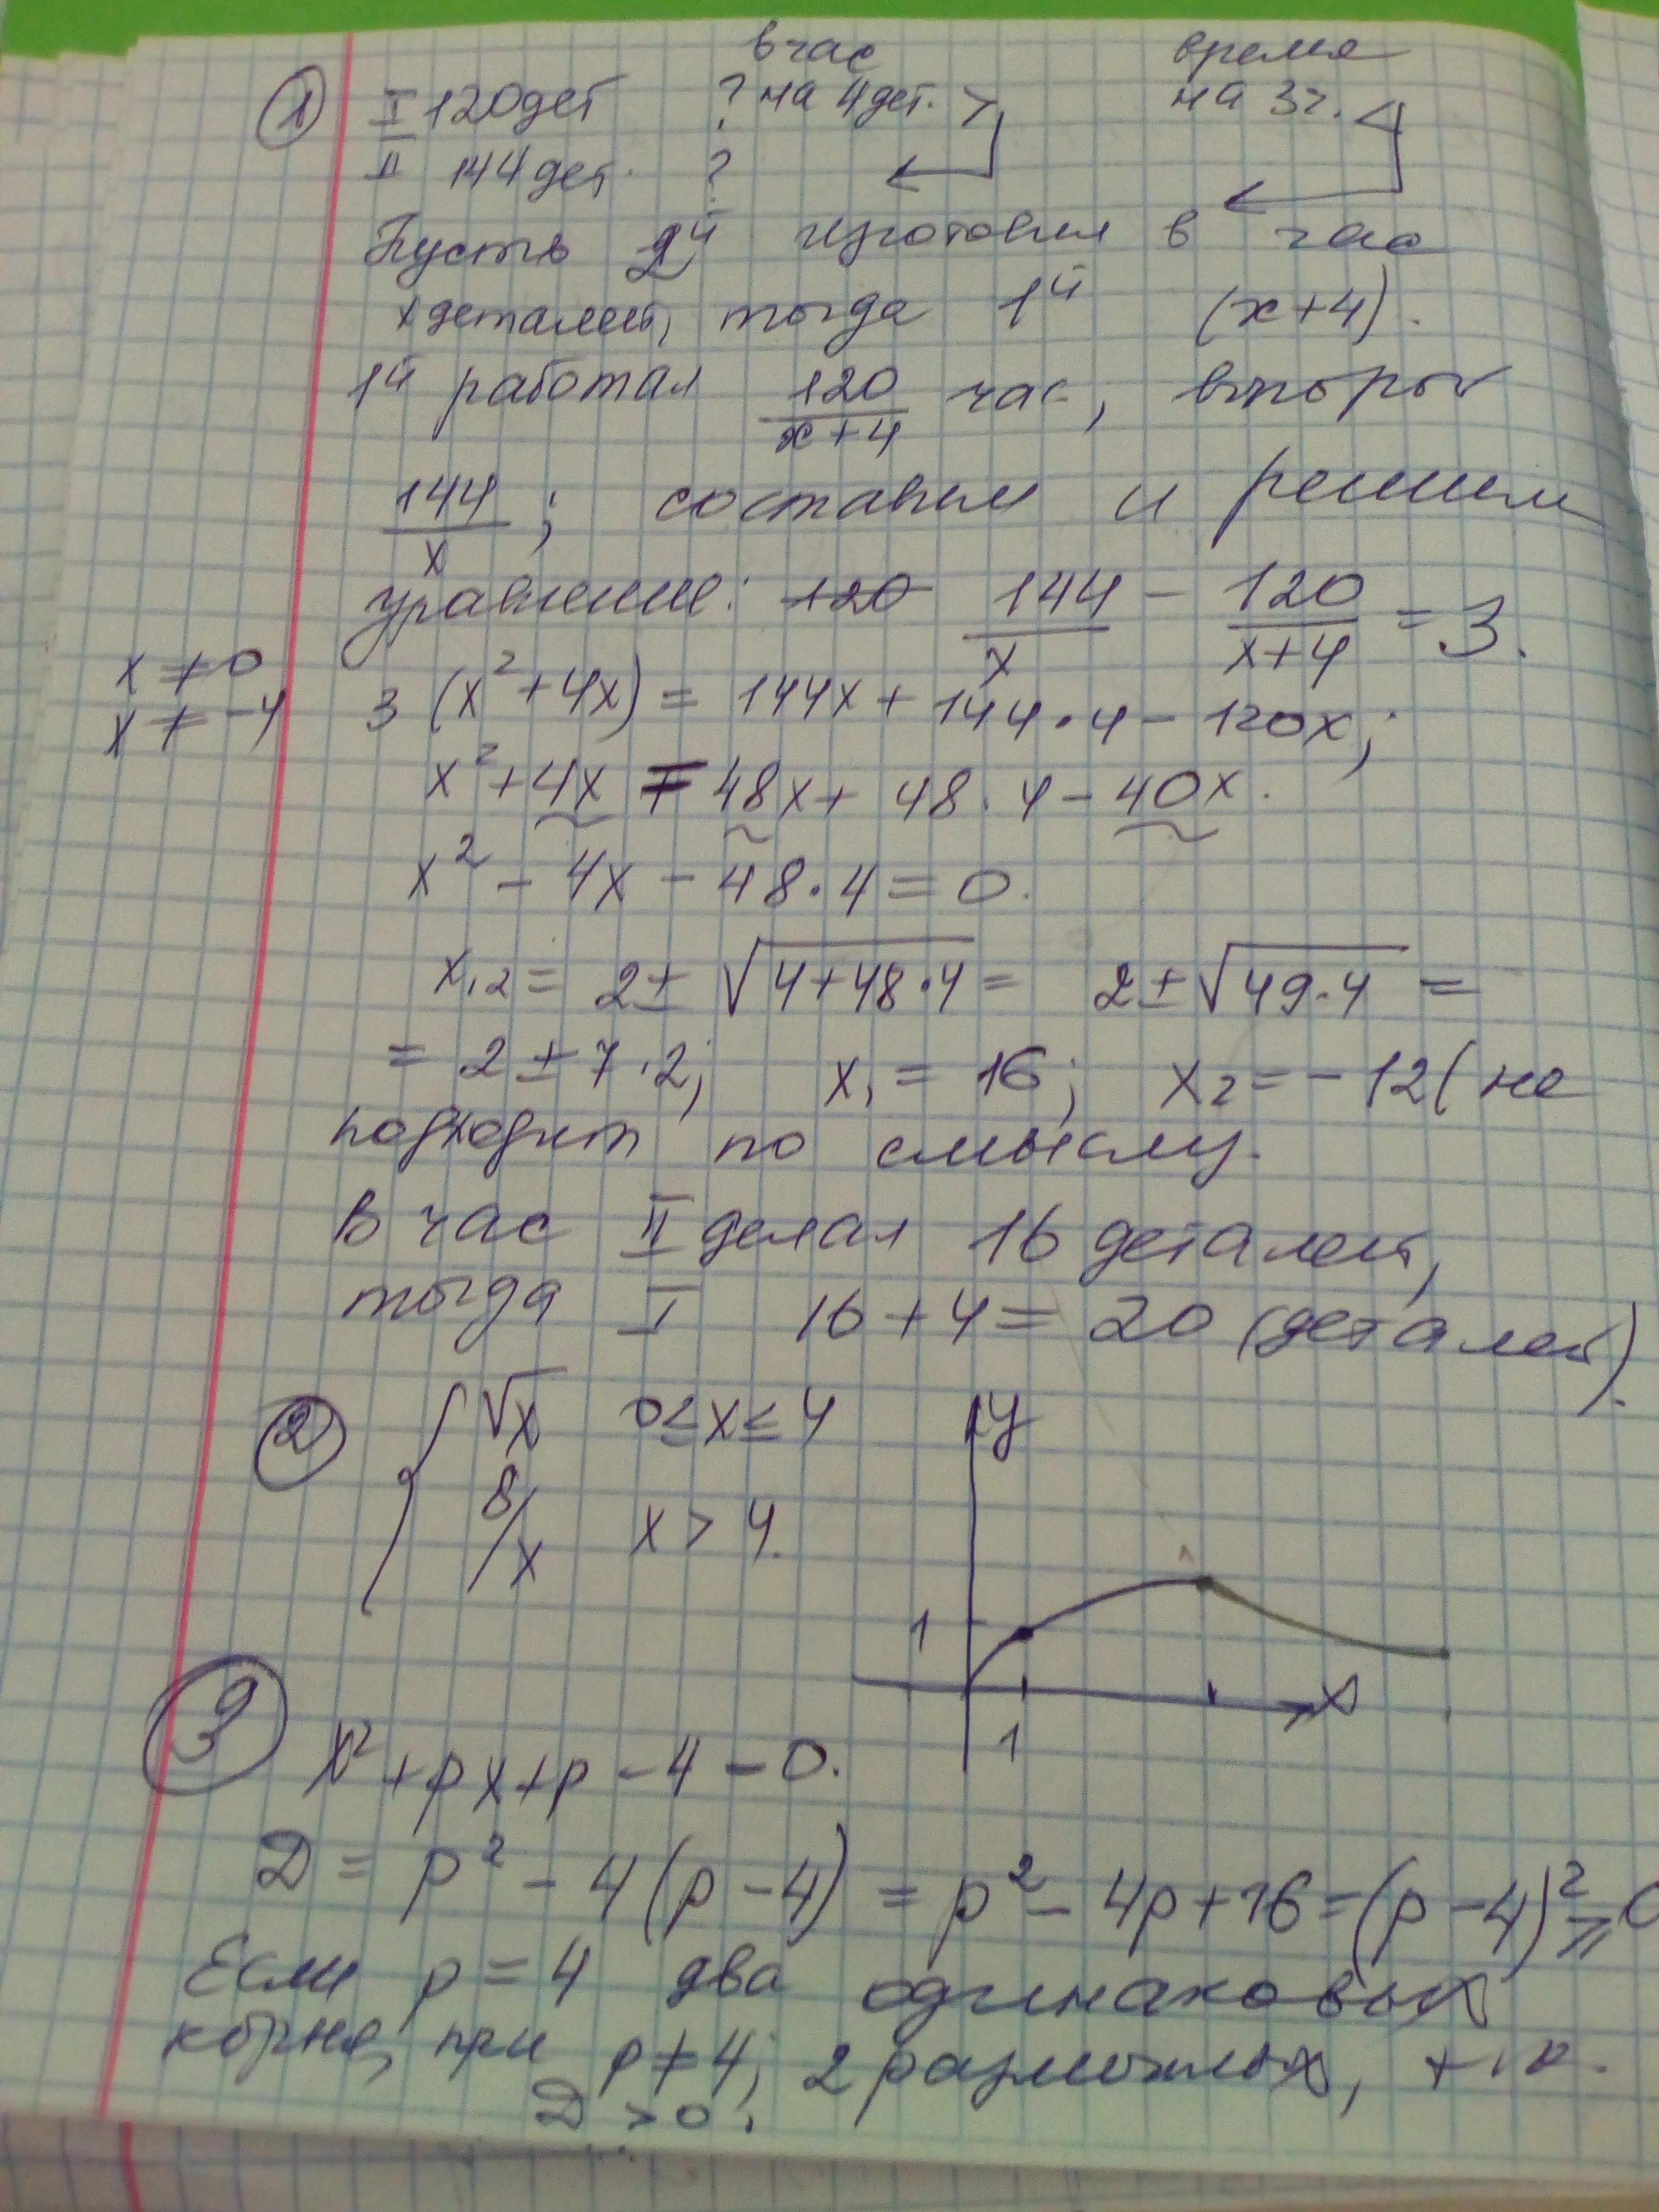 в час время
① I 120 дет ? на 4 дет. > на 3 г. <
II 144 дет. ?
Пусть 2й изготовил в час
x деталей, тогда 1й (x+4).
1й работал 120/(x+4) час, второй
144/x ; составим и решим
уравнение: 120 144/x - 120/(x+4) = 3.
x ≠ 0
x ≠ -4
3 (x² + 4x) = 144x + 144·4 - 120x;
x² + 4x = 48x + 48·4 - 40x.
x² - 4x - 48·4 = 0.
x₁,₂ = 2 ± √(4+48·4) = 2 ± √(49·4) =
= 2 ± 7·2; x₁ = 16; x₂ = -12 (не
подходит по смыслу.
В час II делал 16 деталей,
тогда I 16 + 4 = 20 (деталей).
② { √x 0≤x≤4
8/x x > 4.
y
1
x
1
③ x² + px + p - 4 - 0.
D = p² - 4(p-4) = p² - 4p + 16 = (p-4)² ≥ 0
Если p = 4 два одинаковых
корня, при p ≠ 4; 2 различных,
D > 0.